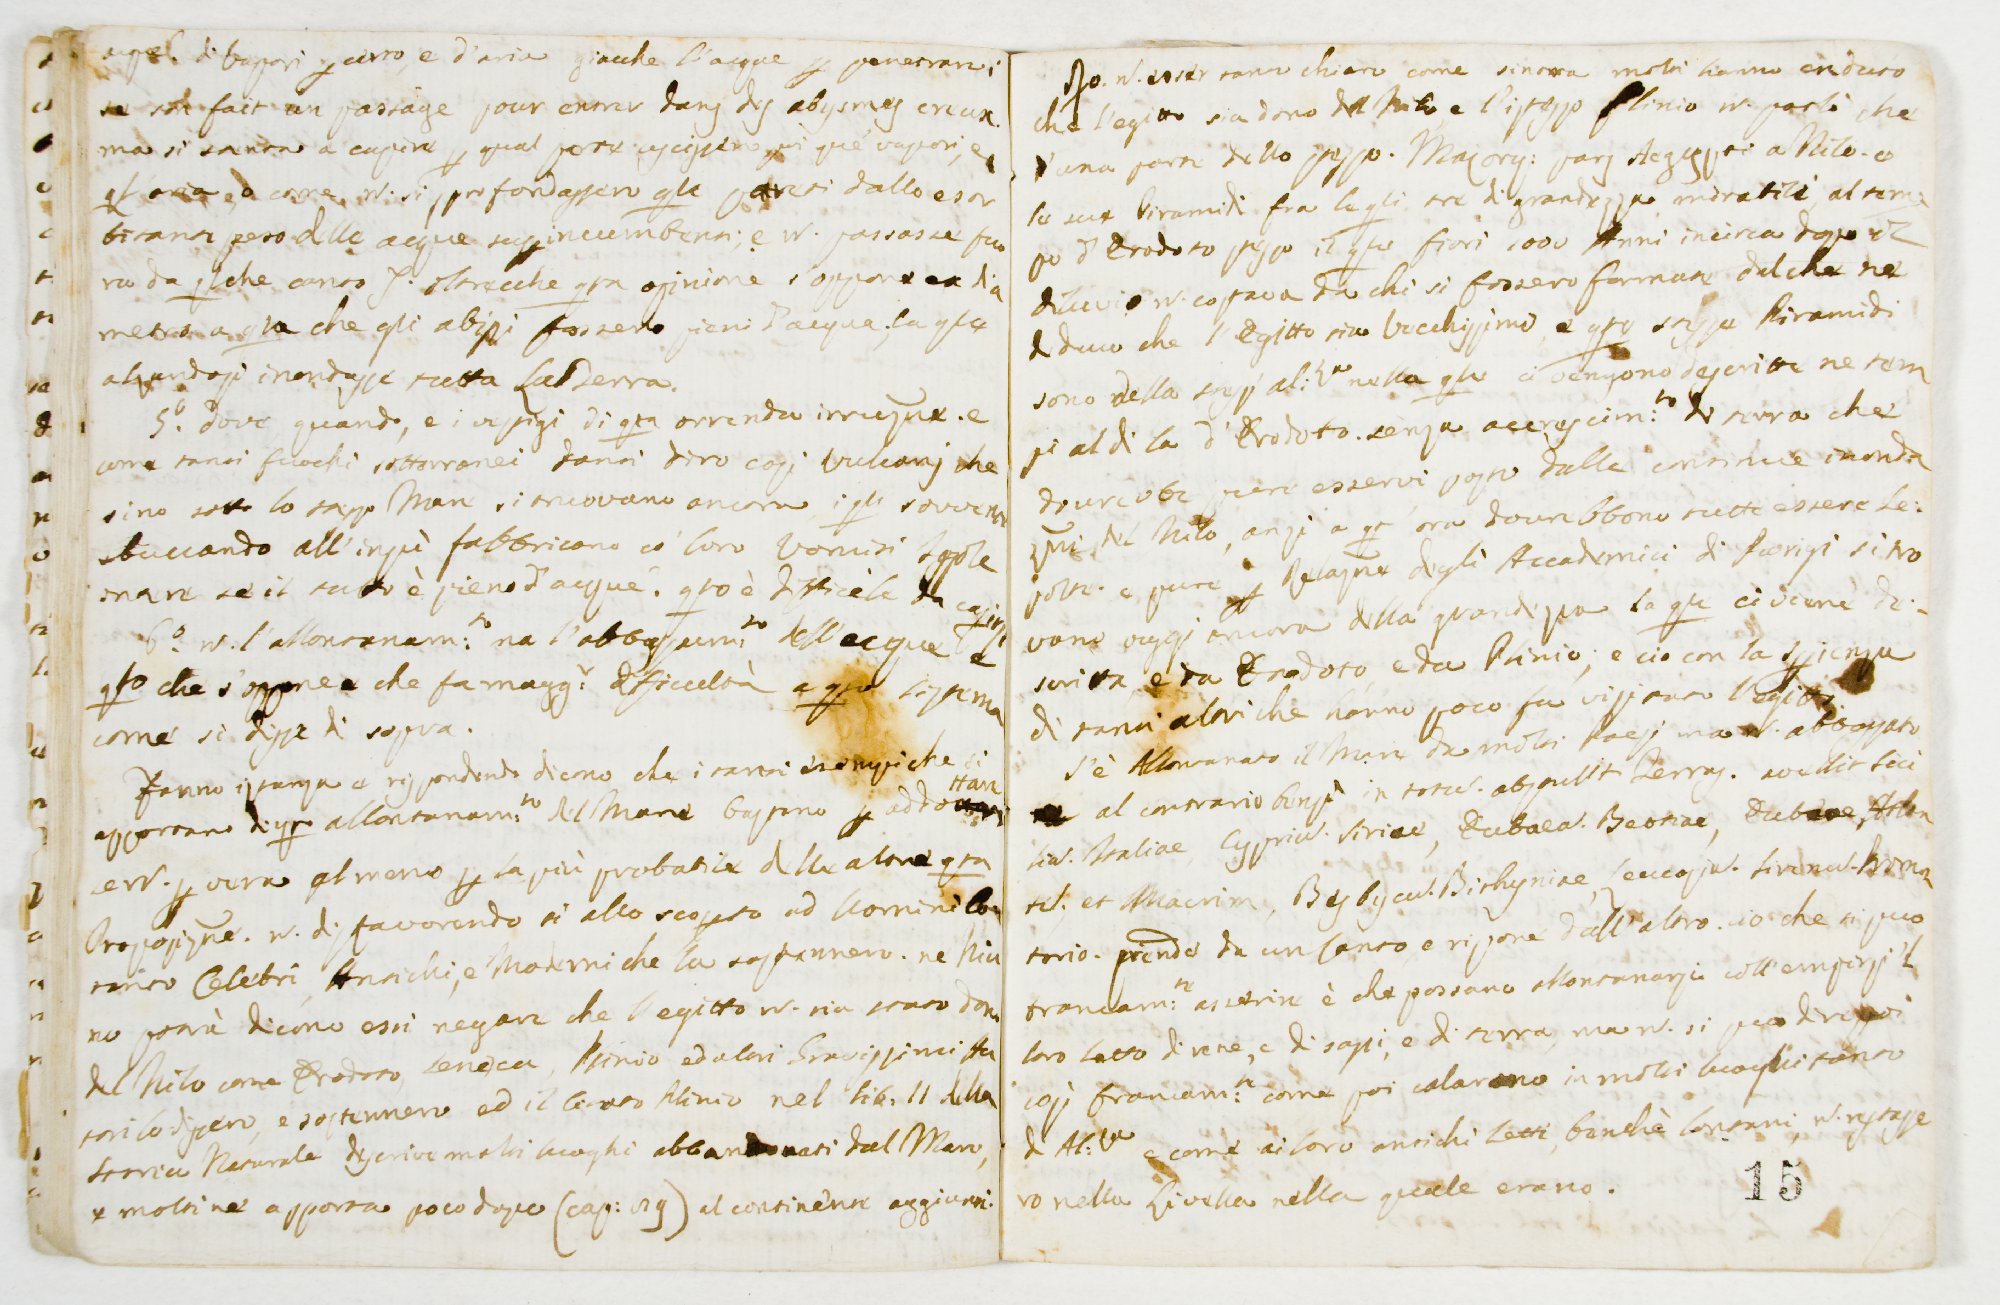 di vapori p cerro, e d'aria giacche l'acque p penetrarvi
se son fait un passage pour entrer dans des abysmes creux.
ma si stenta a capire p qual porte uscissero que' vapori, e
qt aria, o come n. si profondassero qle pareti dallo esor
bitante peso delle acque suppincumbenti; e n. passasse fuo
ra da qlche canto Oltrecche qta opinione s'oppone ex dia
metro a qta che gli abissi fossero pieni d'acqua, la qle
alzandosi inondasse tutta la Terra.
5.° dove quando, e i vestigi di qta orrenda irruzne. e
come tanti fuochi sotterranei tanti diro così vulcani che
sino sotto lo stesso Mare si trovano ancora i qli sovvente
sbuccando all'insù fabbricano co' loro vomiti Isole
in mare se il tutto è pieno d'acque. qto è difficile da capirsi
6.° n. l'allontanam:to ma l'abbassam:to dell'acque è
qto che s'oppone e che fa magg:r difficoltà a qto sistema
come si disse di sopra.
Fanno istanza e rispondendo dicono che i tanti esempi che si
apportano di qto allontanam:to del Mare bastano p addottare
se n. p vera almeno p la più probabile delle altre qta
Propositne. n. disfavorendo si allo scoperto ad Uomini co
tanto Celebri Antichi, e Moderni che la sostennero. ne niu
no potrà dicono essi negare che l'egitto n. sia stato dono
del Nilo come Erodoto, Seneca, Plinio ed altri Gravissimi Au
tori lo dissero, e sostennero ed il citato Plinio nel lib: II della
storia Naturale descrive molti luoghi abbandonati dal Mare,
e molti ne apporta poco dopo (cap: 89) al continente aggiunti.
n. esser tanto chiaro come sinora molti hanno creduto
che l'egitto sia dono del Nilo e l'istesso Plinio n. parlò che
d'una parte dello stesso. Major: pars Aegypti a Nilo. e
le sue Piramidi fra le qli tre di grandezza mirabile, al tem
po d'Erodoto stesso il qle fiori 1000 Anni incirca dopo il
diluvio n. costava da chi si fossero formate dal che ne
deduco che l'Egitto sia Vecchissimo, e qte stesse Piramidi
sono della stess' al:za nella qle ci vengono descritte ne tem
pi al di la d'Erodoto. senza accrescim:to di terra che
dovrebbe pure esservi posto dalle continue inonda
zni del Nilo, anzi a qt'ora dovrebbono tutte essere se:
polte. e pure p Relazne degli Accademici di Parigi si tro
vano oggi ancora della grandezza la qle ci viene de:
scritta e da Erodoto, e da Plinio; e cio con la sperienza
di tanti altri che hanno poco fa visitato l'egitto
S'è Allontanato il Mare da molti Paesi ma n. abbassato
al contrario bensì in totu. abstulit Terras. avellit Sici
liu. Italiae, Cypriu. Siriae, Eubaea. Beotiae, Eubaeae, Atlan
tu. et Macrim, Besbycu. Bithyniae, Leucosiu. Sirenu. Promon
torio. prende da un canto, e ripone dall'altro. cio che si può
francam:te asserire è che possano allontanarsi coll'empirsi 'l
loro letto di rene, e di sassi, e di terra, ma n. si può dir poi
così francam:te come poi calarono in molti luoghi tanto
di Al:za e come ai loro antichi letti, benchè lontani, n. restasse
ro nella Livella nella quale erano.
15